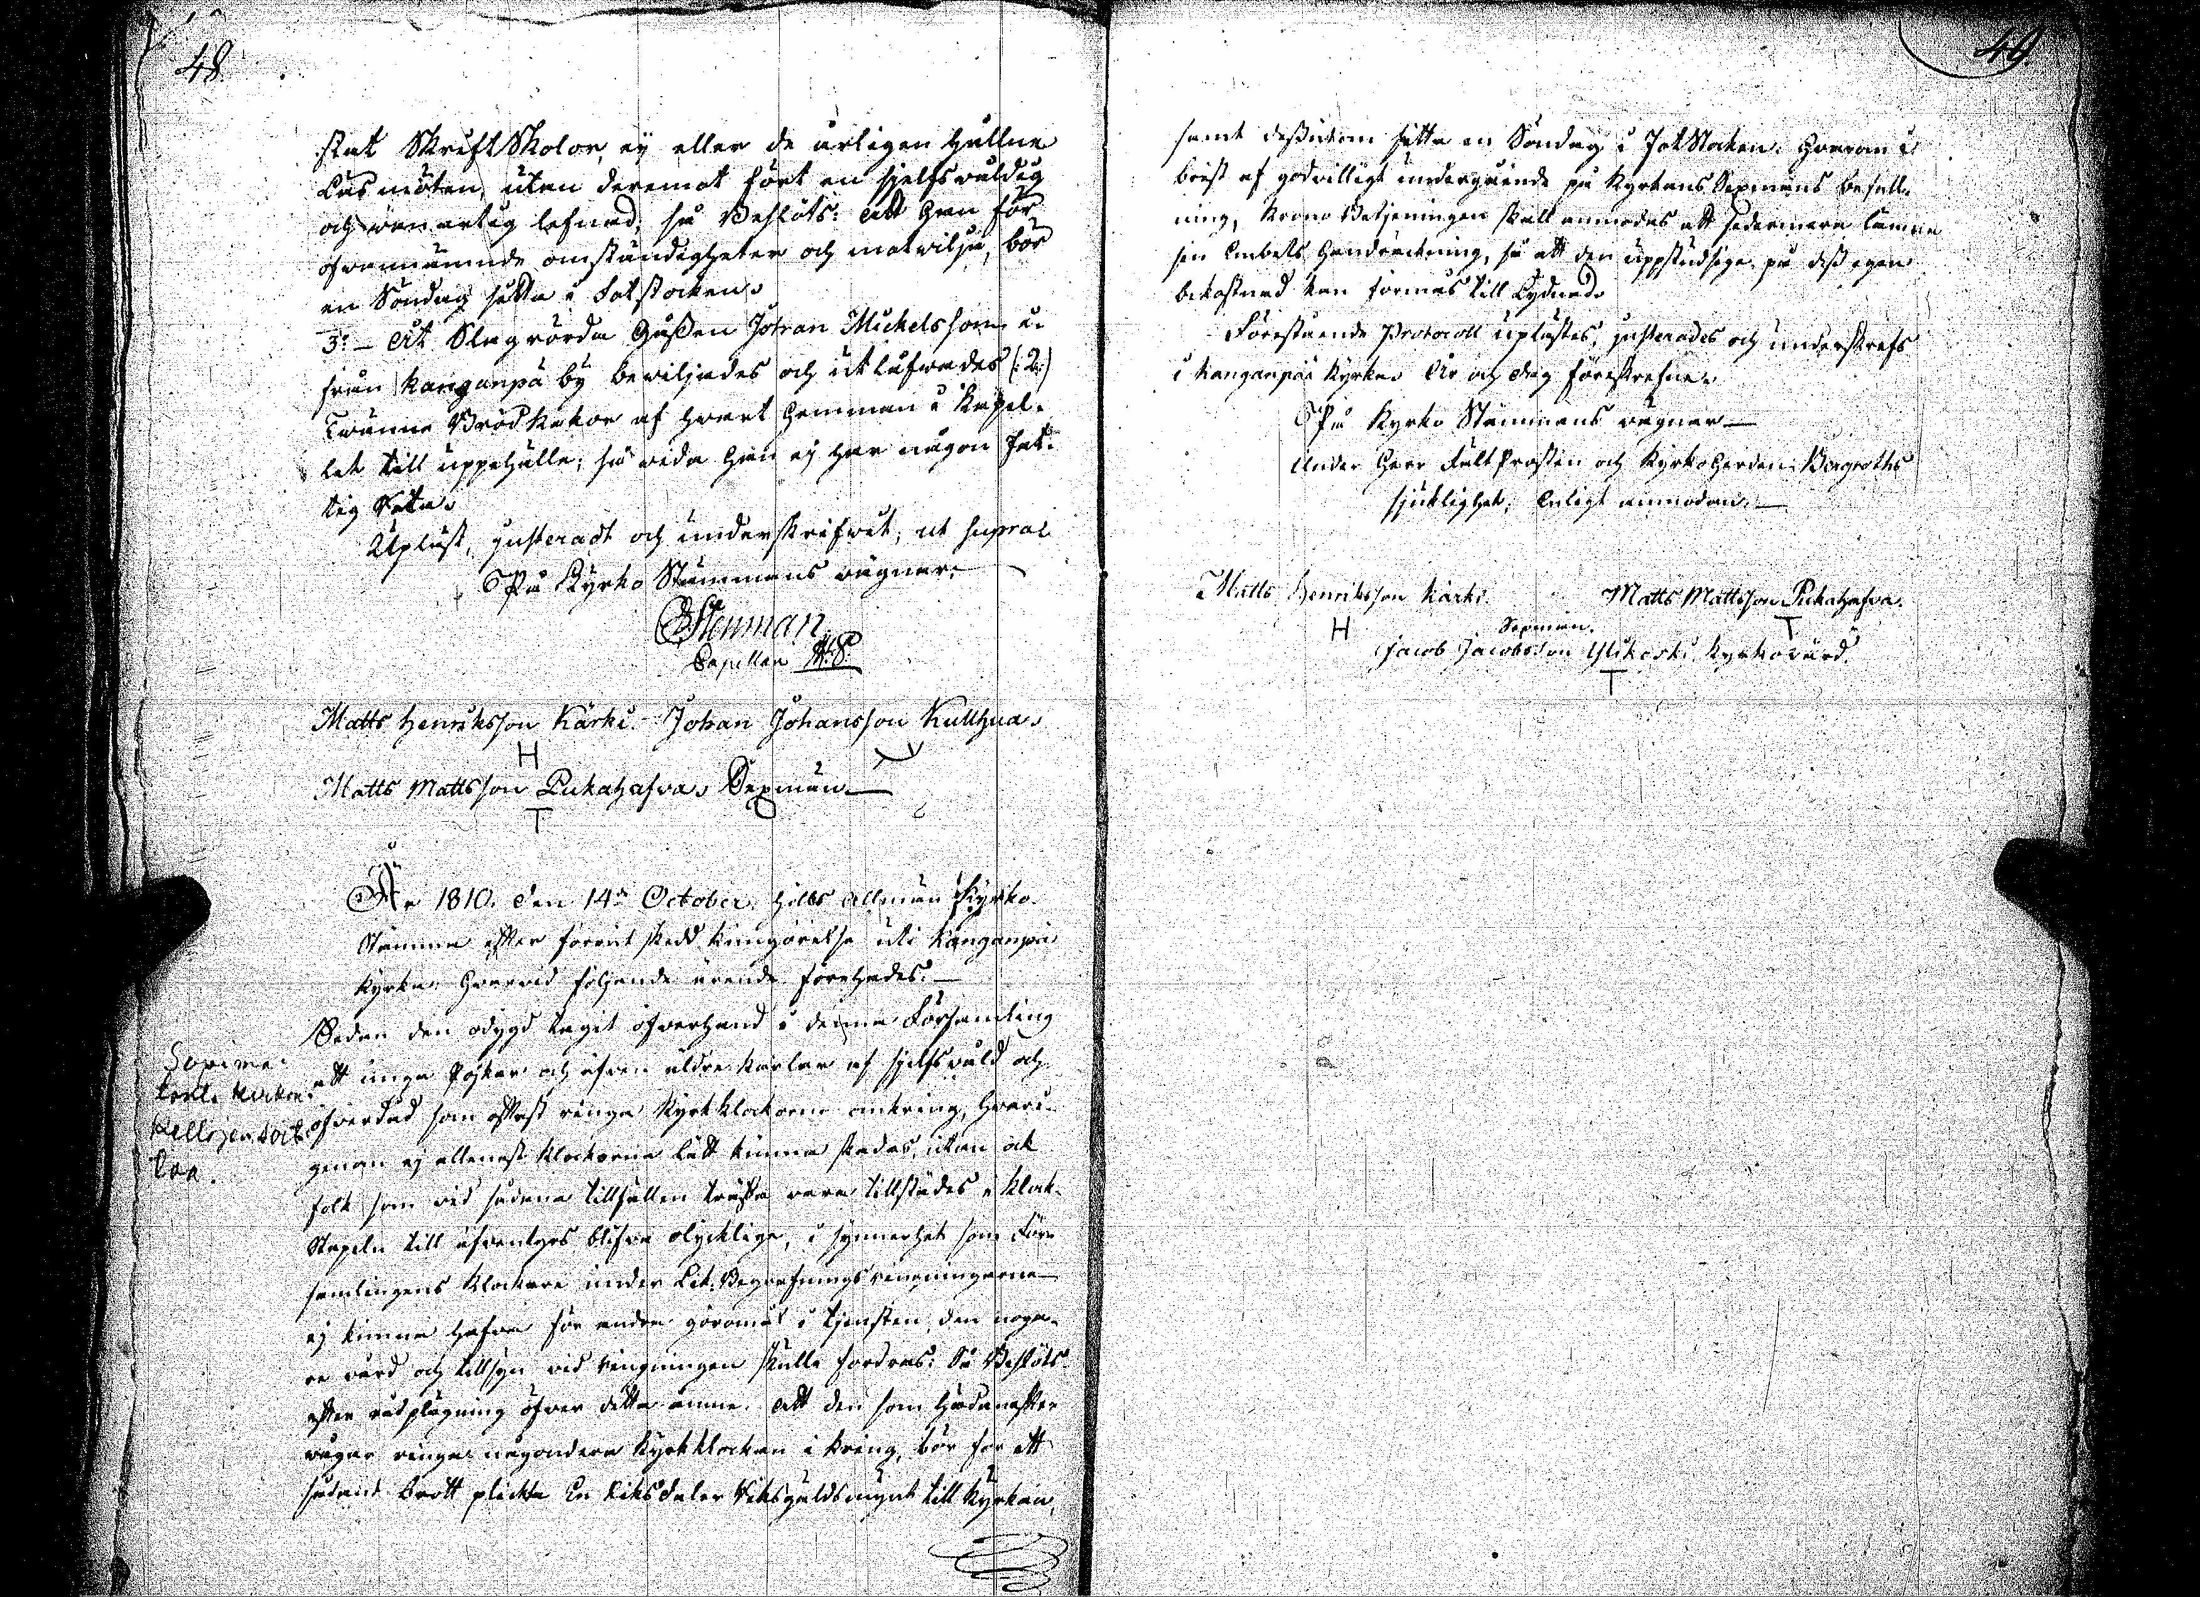 48
stat Skrift Skolor, ej eller de årligen hållne
Läsmöten, utan deremot fört en sjelfsvåldig
och wanartig lefnad; så Beslöts: att han för
ofvannämnde omständigheter och motvilja, bör
en Söndag sitta i Fotstocken.
3:o Åt Slagrörda Gåssen Johan Mickelsson
från Kanganpä by beviljades och utlåfwades (:2:)
Twänne Brödkakor af hwart Hemman i Kapel-
let till uppehälle; så vida han ej har någon Fat-
tig Rota.
Upläst, justeradt och underskrifwit, ut supra
På Kyrko Stämmans wägnar.
Stenman
Capellan
Matts Henriksson Kärki. Johan Johansson Kullhua.
H
Matts Mattsson Pukahafva. Sexmän.
T
År 1810. den 14:de October. hölls allmän Kyrko-
Stämma efter förut skedd kungörelse uti Kanganpä
Kyrka. Hvarvid följande ärende förehades.
Sedan den odygd tagit öfverhand i denna Församling
att unga Pojkar och äfven äldre karlar af sjelfsvåld och
öfverdåd som oftast ringa Kyrkklockorna omkring, hvari-
genom ej allenast klockorna lätt kunna skadas, utan ock
folk som vid sådana tillfällen träffa vara tillstädes i Klock-
Stapeln till äfventyrs blifva olycklige, i synnerhet som För-
samlingens Klockare under Lik-Begrafningsringningarne
ej kunna hafva för andra göromål i tjensten den noga-
re vård och tillsyn vid ringningen skulle fordras: Så Beslöts
efter rådplägning öfver detta ämne. att den som hädanefter
vågar ringa någondera Kyrkklockan i kring, bör för ett
sådant brott plickta En Riksdaler Riksgäldsmynt till Kyrkan,
49
samt dessutom sitta en Söndag i Fotstocken. Hvarom i
brist af godvilligt undergående på Kyrkans Sexmäns befall-
ning, Krono Betjeningen skall anmodas att sedermera lämna
sin Embets Handräckning, så att den uppstudsige på dess egen
bekostnad kan förmås till Lydnad.
Förestående Protocoll uplästes, justerades och underskrefs
i Kanganpää Kyrka. År och dag föreskrefne.
På Kyrko Stämmans wägnar
Under Herr Fält Prosten och Kyrko Herden Bergroths
sjuklighet, Enligt anmodan.
Matts Henriksson Kärki. Matts Mattsson Pukahafva.
H Sexmän. T
Jacob Jacobsson Ylikoski Kyrkovärd.
T